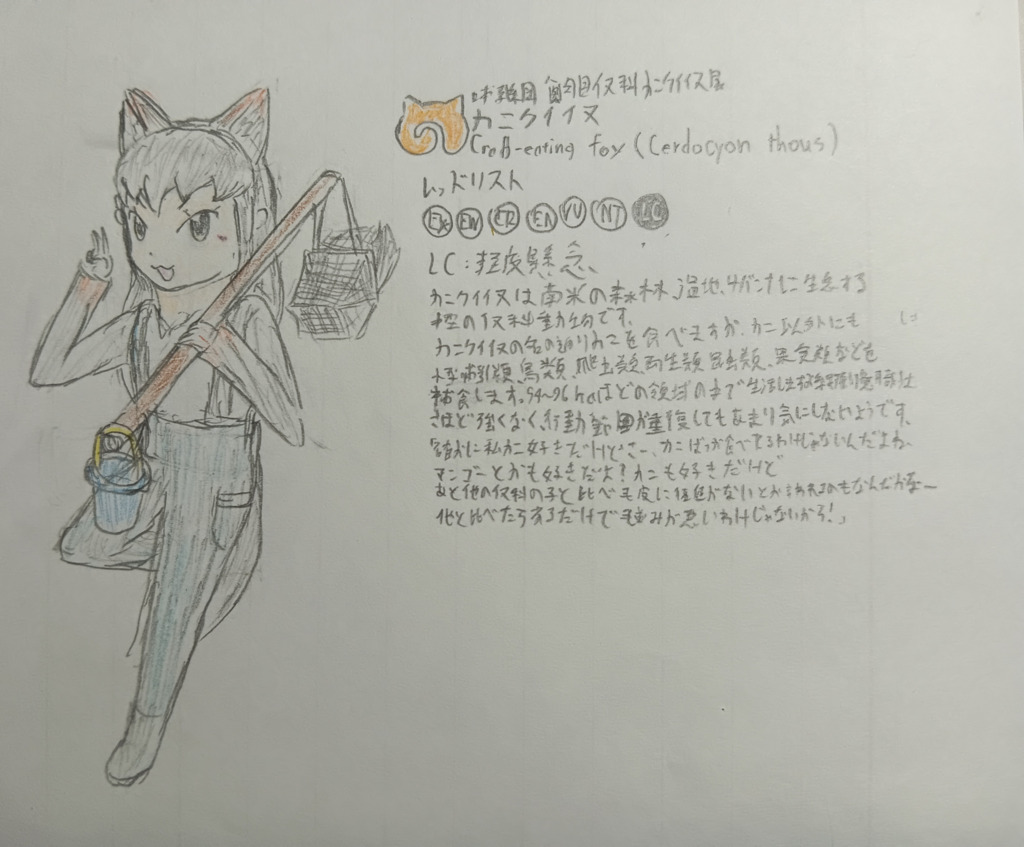 哺乳綱 食肉目イヌ科カニクイイヌ属
カニクイイヌ
Crab-eating fox (Cerdocyon thous)
レッドリスト
EX EW CR EN VU NT LC
LC:軽度懸念
カニクイイヌは南米の森林、湿地、サバンナに生息する
イヌ科動物です。
カニクイイヌの名の通りカニを食べますが、カニ以外にも
小型哺乳類、鳥類、爬虫類、両生類、昆虫類、果実類などを
捕食します。54~96haほどの領域の中で生活します
さほど強くなく、行動範囲が重複してもあまり気にしないようです。
確かに私カニ好きだけどさー、カニばっか食べてるわけじゃないんだよね、
マンゴーとかも好きだよ?カニも好きだけど
あと他のイヌ科の子と比べ毛皮に価値がないとか言われるのもなんだかなー
他と比べたら劣るだけで毛並みが悪いわけじゃないから!」